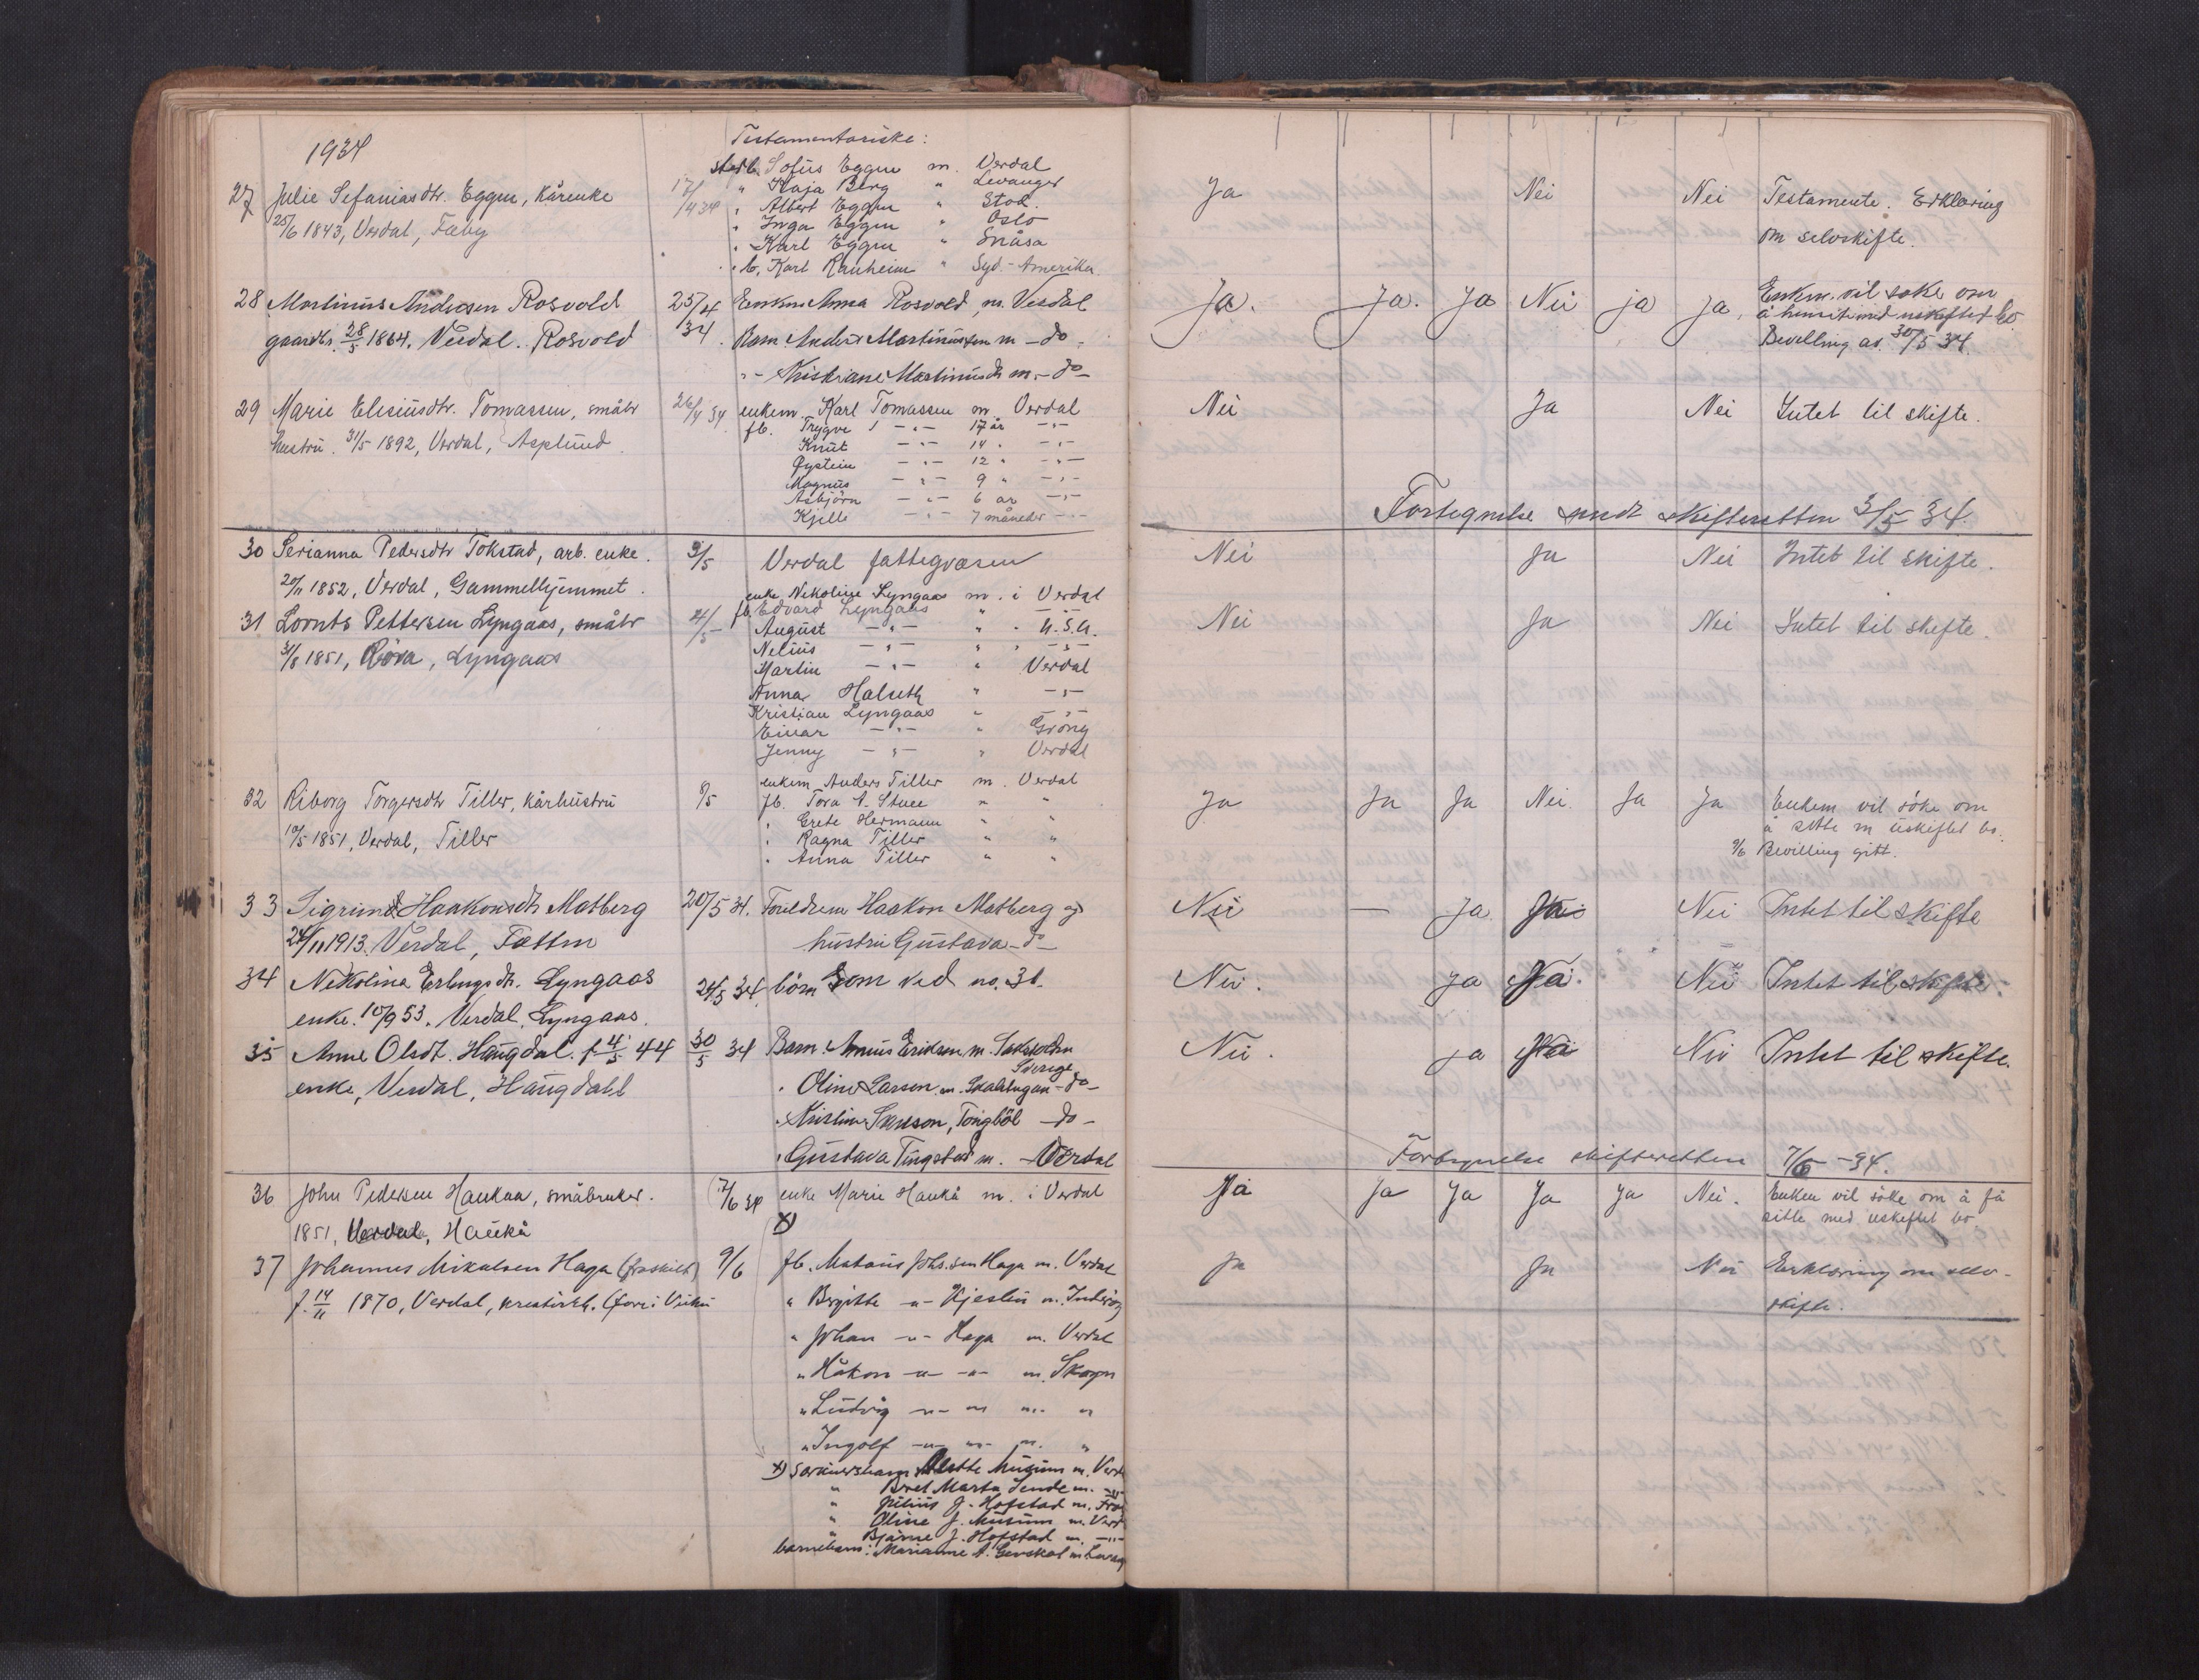 1934
Testamentariske:
Sofus Eggen m. Verdal
27 Julie Sefaniasdtr. Eggen, kårenke 17/4 34 " Kaja Berg " Levanger Ja Nei Nei Testamente. Erklæring
25/6 1843, Verdal, Fæby " Albert Eggen " Stod. om selvskifte.
" Inga Eggen " Oslo
" Karl Eggen " Snåsa
" Karl Ranheim " Syd-Amerika
28 Martinus Andersen Rosvold 25/4 34 Enkem Anna Rosvold, m. Verdal Ja. Ja. Ja Nei ja Ja, Enkem. vil søke om
gaardbr. 28/5 1864. Verdal. Rosvold Barn: Anders Martinussen m -do- uskiftet bo
"- Kristiane Martinusdtr m. -do- Bevilling av 30/5 34.
29 Marie Elisiusdtr. Tomassen, småbr 26/4 34 enkem. Karl Tomassen m Verdal Nei Ja Nei Intet til skifte.
hustru. 31/5 1892, Verdal, Asplund. fb. Trygve -"- 17 år -"-
Knut -"- 14 " -"-
Øystein -"- 12 " -"-
Magnus -"- 9 " -"-
Asbjörn -"- 6 år -"-
Kjell -"- 7 måneder -"-
Fortegnelse sendt skifteretten 3/5 34.
30 Serianna Pedersdtr Tokstad, arb. enke. 3/5 Verdal fattegvæsen Nei Ja Nei Intet til skifte.
20/11 1852, Verdal, Gammelhjemmet.
enke Nekoline Lyngaas m. i Verdal
31 Lornts Pettersen Lyngaas, småbr 4/5 fb. Edvard Lyngaas " -"- Nei Ja Nei Intet til skifte.
31/8 1851, Röra, Lyngaas August -"- " U.S.A.
Nelius -"- " " -"-
Martin -"- " Verdal
Anna Halseth " -"-
Kristian Lyngaas " -"-
Einar -"- " Grong
Jenny -"- " Verdal
enkem. Anders Tiller m. Verdal
32 Riborg Torgersdtr Tiller, kårhustru 8/5 fb. Tora A. Stuee " " Ja Ja Ja Nei. Ja Ja Enkem vil söke om
10/5 1851, Verdal, Tiller " Grete Hermann " " å sitte m uskiftet bo.
" Ragna Tiller " " 9/6 Bevilling gitt.
" Anna Tiller " "
33 Sigrund Haakonsdtr Matberg 20/5 34. Foreldrene Haakon Matberg og Nei — Ja Nei Intet til skifte
24/11 1913. Verdal, Fætten hustru Gustava -do-
34 Nekolina Erlingsdtr. Lyngaas 24/5 34. börn som ved no. 31. Nei. Ja Nei Intet til skifte.
enke. 10/9 53. Verdal, Lyngaas.
35 Anne Olsdtr. Haugdal. f. 4/5 44 30/5 34 Barn: Anneus Eriksen, m. Nei. ja Nei Intet til skifte.
enke, Verdal, Haugdahl Sverige
" Oline Larson m. Skalstugan -do-
" Kristine , Tongböl -do-
" Gustava Tingstad m. - Verdal
Fortegnelse skifteretten 7/6 -34.
36 John Pedersen Haukaa, småbruker. 7/6 34 enke Marie Haukå m. i Verdal Ja Ja Ja Ja Ja Nei. Enken vil söke om å få
1851, Verdal, Haukå x) sitte med uskiftet bo.
37 Johannes Mikalsen Haga (fraskilt) 9/6 fb. Mataus Johs.sen Haga m. Verdal Ja Ja Nei Erklæring om selv-
f. 14/11 1870, Verdal, kreaturh. " Birgitte -"- Hjeslin m. Inderøy skifte.
" Johan -"- Haga m. Verdal
" Håkon -"- -"- m. Skogn
" Ludvig -"- -"- m. "
" Ingolf -"- -"- m. "
x) Særkuersbarn Alette Musum m. Verd
" Bret Marta Sende m. -"-
" Julius J. Hofstad m.
" Oline J. Musum m. Verd
" Bjarne J. Hofstad m. -"-
barnebarn: Marianne A. m.